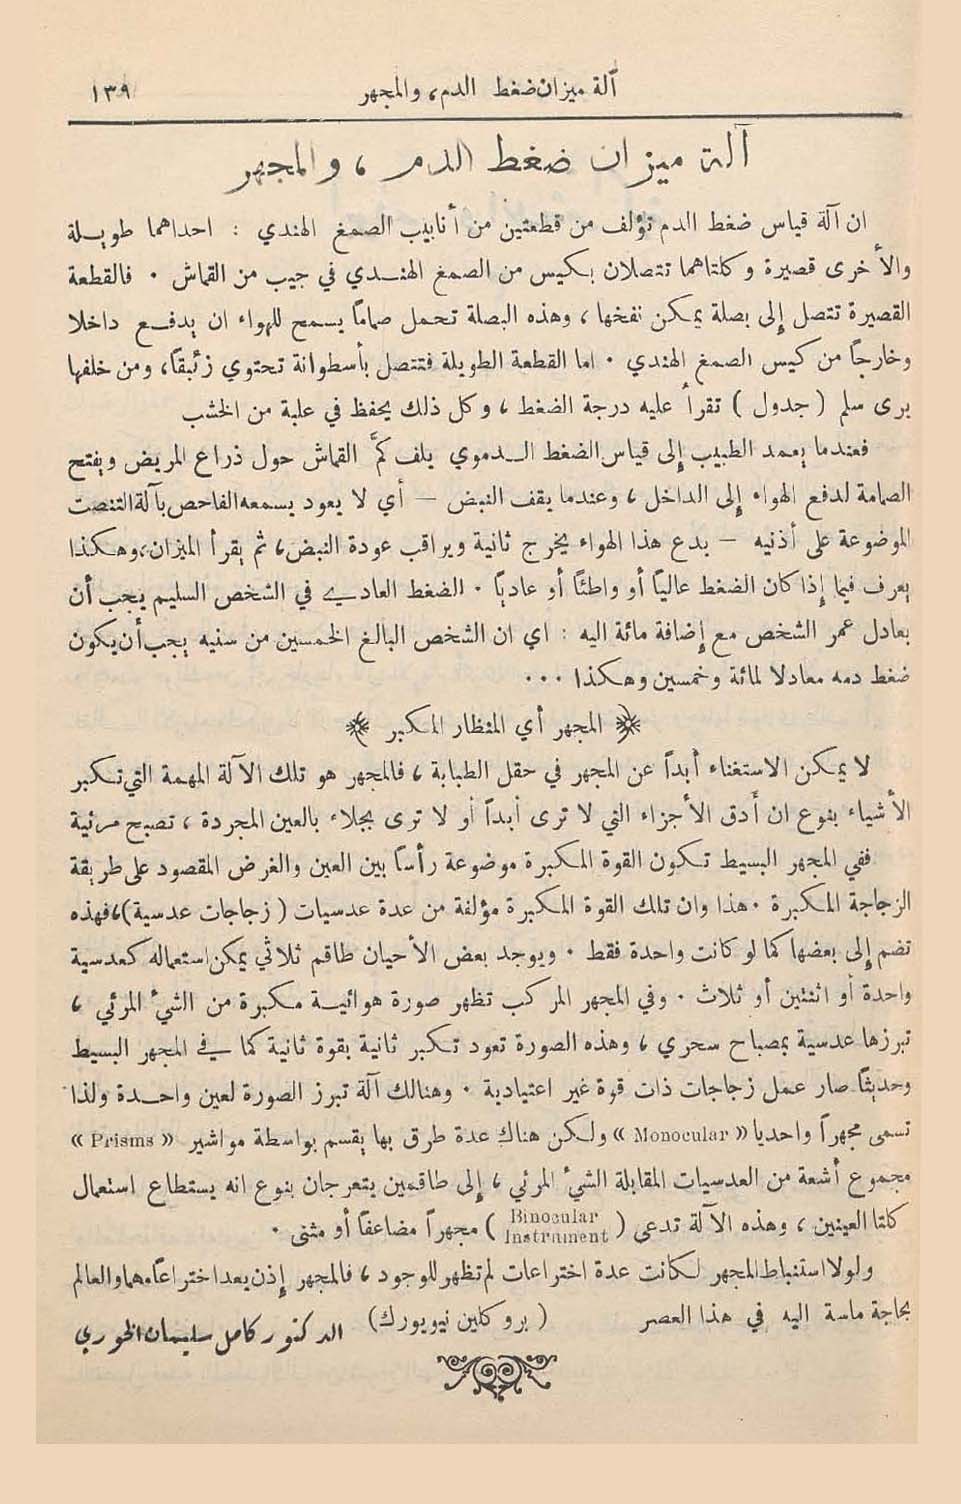 آلة ميزان ضغط الدم ، والمجهر ١٣٩
آلة ميزان ضغط الدم ، والمجهر
ان آلة قياس ضغط الدم تؤلف من قطعتين من أنابيب الصمغ الهندي : احداهما طويلة
والأخرى قصيرة وكلتاهما تتصلان بكيس من الصمغ الهندي في جيب من القماش . فالقطعة
القصيرة تتصل إلى بصلة يمكن نفخها ، وهذه البصلة تحمل صماماً يسمح للهواء ان يدفع داخلا
وخارجاً من كيس الصمغ الهندي . اما القطعة الطويلة فتتصل بأسطوانة تحتوي زئبقاً ، ومن خلفها
يرى سلم ( جدول ) تقرأ عليه درجة الضغط ، وكل ذلك يحفظ في علبة من الخشب
فعندما يعمد الطبيب إلى قياس الضغط الدموي يلف كمَّ القماش حول ذراع المريض ويفتح
الصمامة لدفع الهواء إلى الداخل ، وعندما يقف النبض – أي لا يعود يسمعه الفاحص بآلة التنصت
الموضوعة على أذنيه – يدع هذا الهواء يخرج ثانية ويراقب عودة النبض ، ثم يقرأ الميزان ، وهكذا
يعرف فيما إذا كان الضغط عالياً أو واطئاً أو عادياً . الضغط العادي في الشخص السليم يجب أن
يعادل عمر الشخص مع إضافة مائة اليه : اي ان الشخص البالغ الخمسين من سنيه يجب أن يكون
ضغط دمه معادلا لمائة وخمسين وهكذا ...
المجهر أي المنظار المكبر
لا يمكن الاستغناء أبداً عن المجهر في حقل الطبابة ، فالمجهر هو تلك الآلة المهمة التي تكبر
الأشياء بنوع ان أدق الأجزاء التي لا ترى أبداً أو لا ترى بجلاء بالعين المجردة ، تصبح مرئية
ففي المجهر البسيط تكون القوة المكبرة موضوعة رأساً بين العين والغرض المقصود على طريقة
الزجاجة المكبرة . هذا وان تلك القوة المكبرة مؤلفة من عدة عدسيات ( زجاجات عدسية ) ، فهذه
تضم إلى بعضها كما لو كانت واحدة فقط . ويوجد بعض الأحيان طاقم ثلاثي يمكن استعماله كعدسية
واحدة أو اثنتين أو ثلاث . وفي المجهر المركب تظهر صورة هوائية مكبرة من الشيء المرئي ،
تبرزها عدسية بمصباح سحري ، وهذه الصورة تعود تكبر ثانية بقوة ثانية كما في المجهر البسيط
وحديثاً صار عمل زجاجات ذات قوة غير اعتيادية . وهنالك آلة تبرز الصورة لعين واحدة ولذا
تسمى مجهراً واحديا « Monocular » ولكن هناك عدة طرق بها يقسم بواسطة مواشير « Prisms »
مجموع أشعة من العدسيات المقابلة الشيء المرئي ، إلى طاقمين يتعرجان بنوع انه يستطاع استعمال
كلتا العينين ، وهذه الآلة تدعى ( Binocular Instrument ) مجهراً مضاعفاً أو مثنى .
ولولا استنباط المجهر لكانت عدة اختراعات لم تظهر للوجود ، فالمجهر إذن يعد اختراعاً مهما والعالم
بحاجة ماسة اليه في هذا العصر ( بروكلين نيويورك ) الدكتور كامل سليمان الخوري